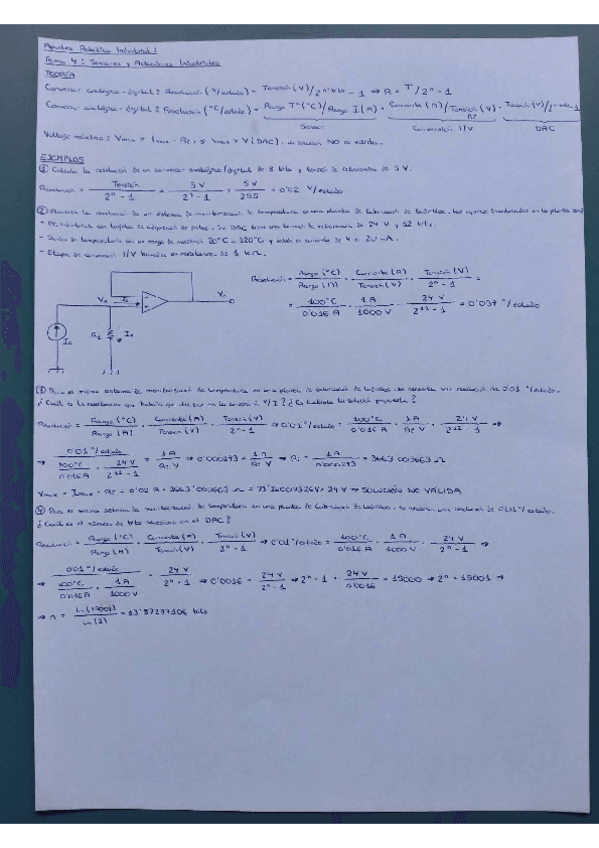 Apuntes Robótica Industrial I
Tema 4: Sensores y Actuadores Industriales
TEORÍA
Conversor analógico-digital: Resolución (V/estado) = Tensión (V) / 2^nº bits - 1 → R = T / 2^n - 1
Conversor analógico-digital: Resolución (°C/estado) = Rango Tª (°C) / Rango I (A) · Corriente (A) / Tensión (V) · Tensión (V) / 2^nº bits - 1
Sensor Conversión I/V DAC
Voltaje máximo: Vmax = Imax · R1; si Vmax > V (DAC), la solución NO es válida.
EJEMPLOS
① Calcula la resolución de un conversor analógico/digital de 8 bits y tensión de referencia de 5 V.
Resolución = Tensión / 2^n - 1 = 5 V / 2^8 - 1 = 5 V / 255 = 0'02 V/estado
② la resolución de un sistema de monitorización de temperatura en una planta de fabricación de ladrillos. Los equipos en la planta son:
- PC industrial con tarjeta de adquisición de datos. Su DAC tiene una tensión de referencia de 24 V y 12 bits.
- Sensor de temperatura con un rango de medición 20°C a 120°C y salida en corriente de 4 a 20 mA.
- Etapa de conversión I/V basada en resistencia de 1 kΩ.
Resolución = Rango (°C) / Rango (A) · Corriente (A) / Tensión (V) · Tensión (V) / 2^n - 1 =
= 100°C / 0'016 A · 1 A / 1000 V · 24 V / 2^12 - 1 = 0'037 °/estado
③ Para el mismo sistema de monitorización de temperatura en una planta de fabricación de ladrillos, se necesita una resolución de 0'01 °/estado.
¿Cuál es la resistencia que habría que utilizar en la conversión V/I? ¿Es factible la solución propuesta?
Resolución = Rango (°C) / Rango (A) · Corriente (A) / Tensión (V) · Tensión (V) / 2^n - 1 → 0'01 °/estado = 100°C / 0'016 A · 1 A / R1 V · 24 V / 2^12 - 1 →
→ 0'01 °/estado / 100°C / 0'016 A · 24 V / 2^12 - 1 = 1 A / R1 V → 0'000273 = 1 A / R1 V → R1 = 1 A / 0'000273 = 3663'003663 Ω
Vmax = Imax · R1 = 0'02 A · 3663'003663 Ω = 73'26007326 V > 24 V → SOLUCIÓN NO VÁLIDA
④ Para el mismo sistema de monitorización de temperatura en una planta de fabricación de ladrillos, se necesita una resolución de 0'01 °/estado.
¿Cuál es el número de bits necesario en el DAC?
Resolución = Rango (°C) / Rango (A) · Corriente (A) / Tensión (V) · Tensión (V) / 2^n - 1 → 0'01 °/estado = 100°C / 0'016 A · 1 A / 1000 V · 24 V / 2^n - 1 →
→ 0'01 °/estado / 100°C / 0'016 A · 1 A / 1000 V = 24 V / 2^n - 1 → 0'0016 = 24 V / 2^n - 1 → 2^n - 1 = 24 V / 0'0016 = 15000 → 2^n = 15001 →
→ n = ln (15001) / ln (2) = 13'87277106 bits